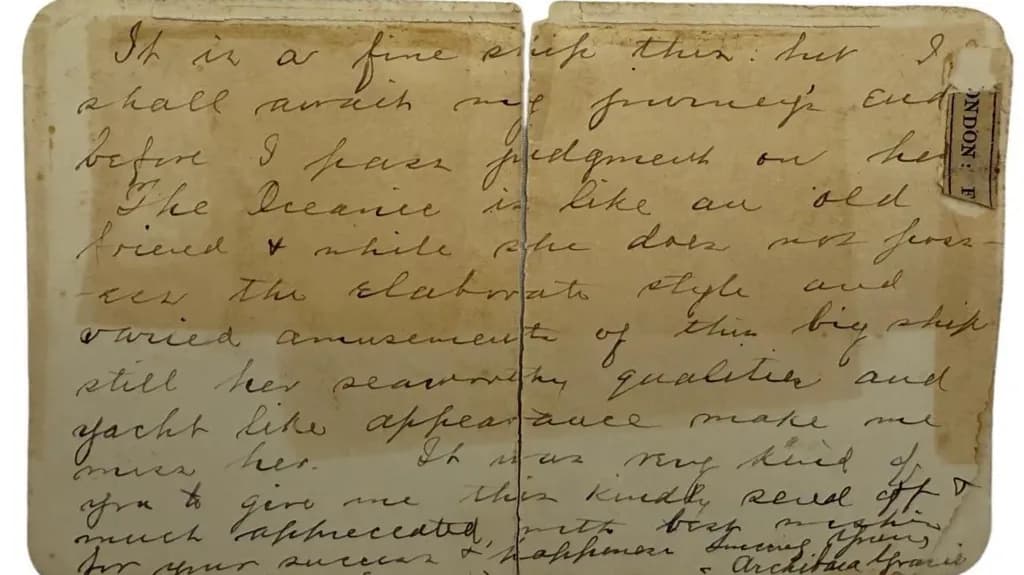 It is a fine ship this but I
shall await my journey's end
before I pass judgment on her
The Oceanic is like an old
friend & while she does not poss-
-ess the elaborate style and
varied amusements of this big ship
still her seaworthy qualities and
yacht like appearance make me
miss her. It was very kind of
you to give me this kindly send off &
much appreciated, with best wishes
for your success & happiness Sincerely yours
Archibald Gracie
ONDON: F